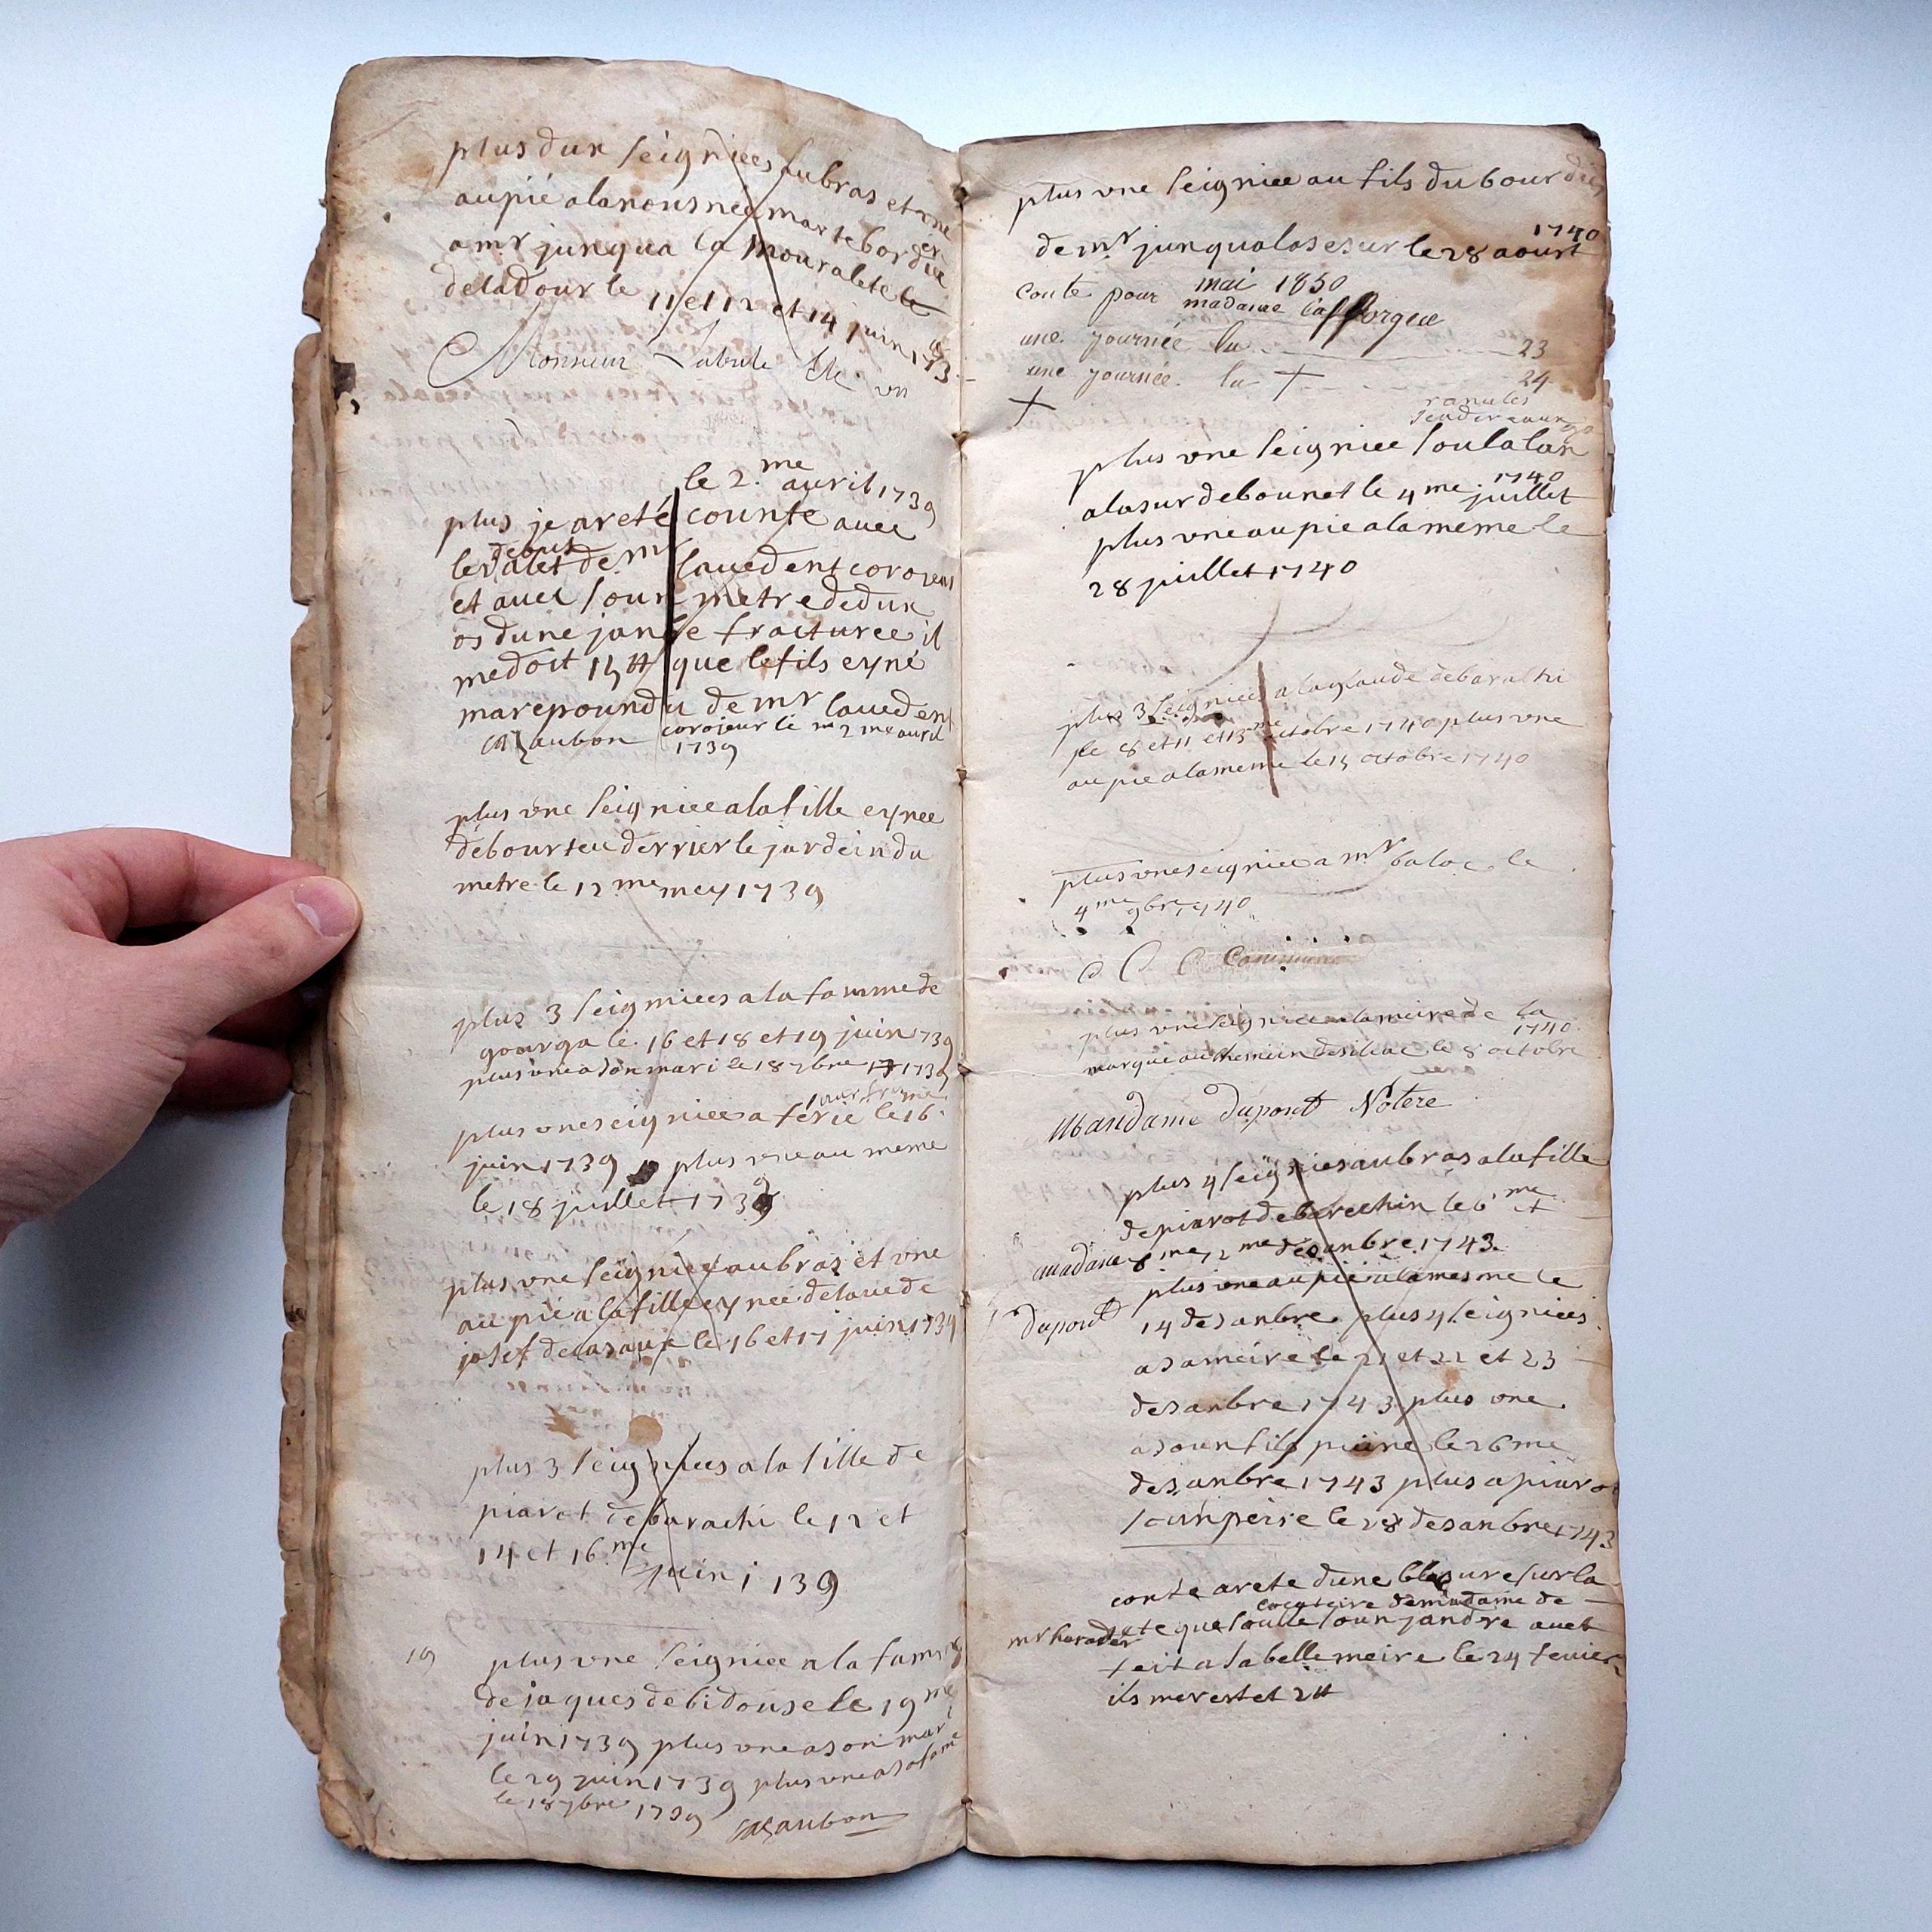 plus dun seigniees aubras et vne
aupié alanousnée marte bordiu
a mr junqua la mouralete le
deladour le 11 et 12 et 14 juin 173
Monsieur Labule
un
le 2.me auril 1739
plus je areté counte auec
debus
le valet de mr lauedent
et auec soun metre dedun
os dune janbe fracturee il
medoit 15 tt que lefils eyné
marepoundu de mr lauedent
cazaubon le 2 me auril
1739
plus vne seigniee alafille eynee
debourteu derrier le jardeindu
metre le 12 me mey 1739
plus 3 seigniees ala famme de
gourga le 16 et 18 et 19 juin 1739
plus vne a son mari le 18 7bre 1739
plus vne seigniee a ferie le 16 me
juin 1739 plus vne au meme
le 18 juillet 1739
plus vne seigniee aubras et vne
au pié a lafille eynee delauede
josef decasaux le 16 et 17 juin 1739
plus 3 seigniees a la fille de
piarot debarachi le 12 et
14 et 16 me
juin 1739
19
plus vne seigniee a la fame
de jaques debidouse le 19 me
juin 1739 plus vne a son mari
le 29 juin 1739 plus vne a sa fame
le 18 7bre 1739 cazaubon
plus vne seigniee au fils du bourdiu
1740
de mr junqua lasesur le 28 aourt
mai 1850
conte pour madame Lafforgue
une journée la 23
une journée la 24
plus vne seigniee soulalan
1740
alasur debounet le 4 me juillet
plus vne au pie alameme le
28 juillet 1740
plus 3 seigniees a laglaude debarathi
le 8 et 11 et 13 me octobre 1740 plus vne
au pie alameme le 15 octobre 1740
plus vne seigniee a mr balac le
4 me 9bre 1740
C C
plus vne seigniee alameirede la
1740
marque authemin desiliac le 8 octobre
Mandame dupont Notere
plus 4 seigniees aubras alafille
depiarot deberechin le 6 me et
madame 8 me 12 me desanbre 1743
plus vne au pié alamesme le
dupont 14 desanbre plus 4 seigniees
asameire le 21 et 22 et 23
desanbre 1743 plus vne
a soun fils le 26 me
desanbre 1743 plus a piarot
soun peire le 28 desanbre 1743
conte arete dune blesure sur la
demadame de
tete que soun jandre auet
feit a sa belle meire le 24 feuier
ils me restet 2 tt